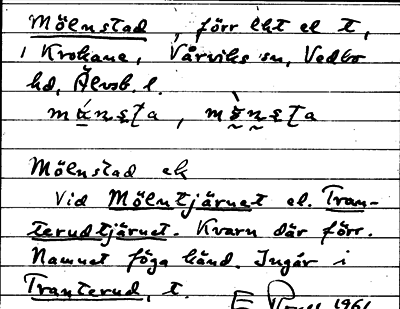 Mölnstad, förr lht el t,
i Krokane, Vårviks sn, Vedbo
hd, Älvsb. l.
Mölnstad ek
Vid Mölntjärnet el. Tran-
terudtjärnet. Kvarn där förr.
Namnet föga känd. Ingår i
Tranterud, t.
1961